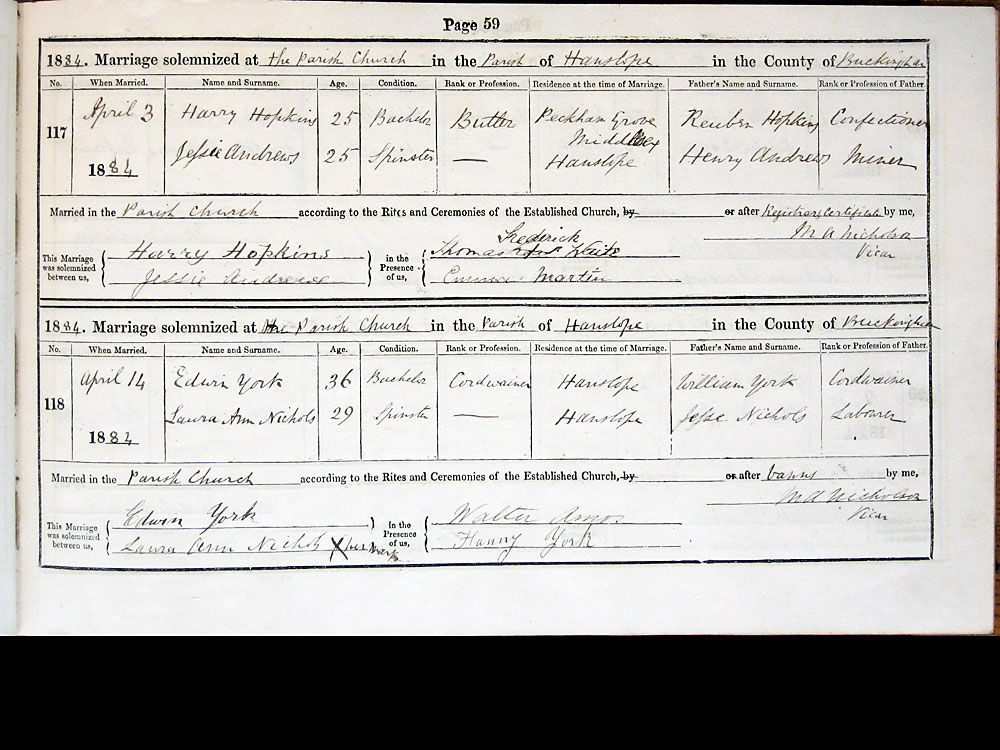 Page 59
1884. Marriage solemnized at the Parish Church in the Parish of Hanslope in the County of Buckingham
No. When Married. Name and Surname. Age. Condition. Rank or Profession. Residence at the time of Marriage. Father's Name and Surname. Rank or Profession of Father.
117 April 3 Harry Hopkins 25 Bachelor Butler Peckham Grove Reuben Hopkins Confectioner
Middlesex
Jessie Andrews 25 Spinster — Hanslope Henry Andrews Miner
1884
Married in the Parish Church according to the Rites and Ceremonies of the Established Church, by or after Registrars Certificate by me,
M A Nicholson
Vicar
This Marriage was solemnized between us, Harry Hopkins in the Presence of us, Thomas Frederick
Jessie Andrews Emma Martin
1884. Marriage solemnized at the Parish Church in the Parish of Hanslope in the County of Buckingham
No. When Married. Name and Surname. Age. Condition. Rank or Profession. Residence at the time of Marriage. Father's Name and Surname. Rank or Profession of Father.
118 April 14 Edwin York 36 Bachelor Cordwainer Hanslope William York Cordwainer
Laura Ann Nichols 29 Spinster — Hanslope Jesse Nichols Labourer
1884
Married in the Parish Church according to the Rites and Ceremonies of the Established Church, by or after banns by me,
M A Nicholson
Vicar
This Marriage was solemnized between us, Edwin York in the Presence of us, Walter Amos
Laura Ann Nichols X her mark Fanny York